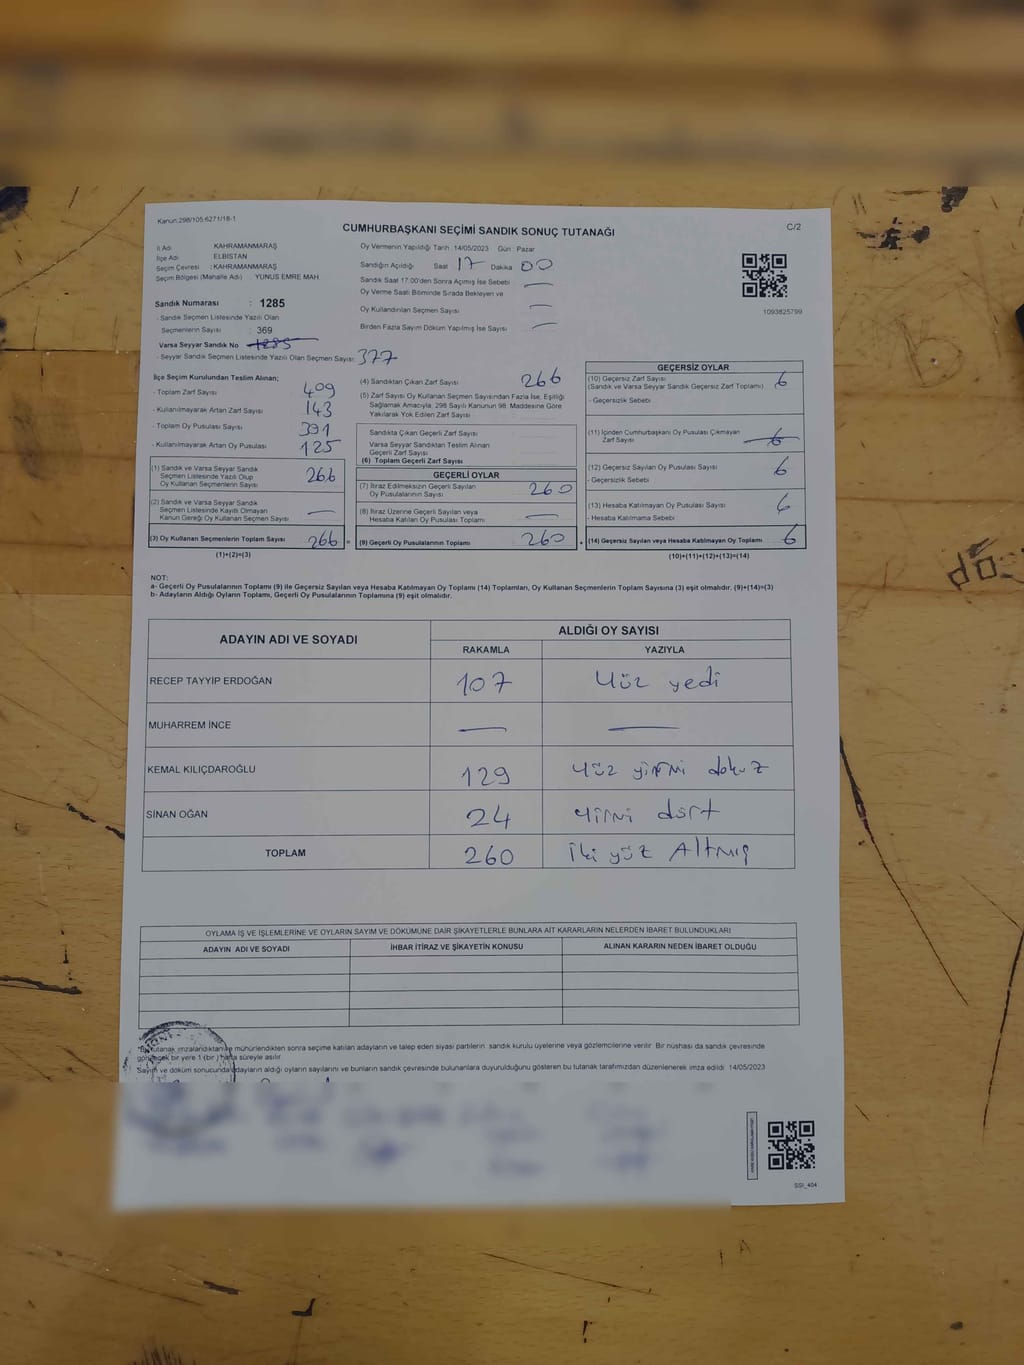 Kanun:298/105 6271/18-1
CUMHURBAŞKANI SEÇİMİ SANDIK SONUÇ TUTANAĞI
C/2
İl Adı KAHRAMANMARAŞ
İlçe Adı ELBİSTAN
Seçim Çevresi : KAHRAMANMARAŞ
Seçim Bölgesi (Mahalle Adı) YUNUS EMRE MAH.
Oy Vermenin Yapıldığı Tarih : 14/05/2023 Gün : Pazar
Sandığın Açıldığı Saat 17 Dakika 00
Sandık Saat 17:00'den Sonra Açımış İse Sebebi —
Oy Verme Saati Bitiminde Sırada Bekleyen ve
Oy Kullandırılan Seçmen Sayısı —
Birden Fazla Sayım Döküm Yapılmış İse Sayısı —
1093825799
Sandık Numarası : 1285
- Sandık Seçmen Listesinde Yazılı Olan
Seçmenlerin Sayısı : 369
Varsa Seyyar Sandık No 1285
- Seyyar Sandık Seçmen Listesinde Yazılı Olan Seçmen Sayısı: 377
İlçe Seçim Kurulundan Teslim Alınan;
- Toplam Zarf Sayısı 409
- Kullanılmayarak Artan Zarf Sayısı 143
- Toplam Oy Pusulası Sayısı 391
- Kullanılmayarak Artan Oy Pusulası 125
(1) Sandık ve Varsa Seyyar Sandık
Seçmen Listesinde Yazılı Olup
Oy Kullanan Seçmenlerin Sayısı 266
(2) Sandık ve Varsa Seyyar Sandık
Seçmen Listesinde Kayıtlı Olmayan
Kanun Gereği Oy Kullanan Seçmen Sayısı —
(3) Oy Kullanan Seçmenlerin Toplam Sayısı 266 =
(1)+(2)=(3)
(4) Sandıktan Çıkan Zarf Sayısı 266
(5) Zarf Sayısı Oy Kullanan Seçmen Sayısından Fazla İse, Eşitliği
Sağlamak Amacıyla, 298 Sayılı Kanunun 98. Maddesine Göre
Yakılarak Yok Edilen Zarf Sayısı
Sandıkta Çıkan Geçerli Zarf Sayısı
Varsa Seyyar Sandıktan Teslim Alınan
Geçerli Zarf Sayısı
(6) Toplam Geçerli Zarf Sayısı
GEÇERLİ OYLAR
(7) İtiraz Edilmeksizin Geçerli Sayılan
Oy Pusulalarının Sayısı 260
(8) İtiraz Üzerine Geçerli Sayılan veya
Hesaba Katılan Oy Pusulası Toplamı —
(9) Geçerli Oy Pusulalarının Toplamı 260 +
GEÇERSİZ OYLAR
(10) Geçersiz Zarf Sayısı
(Sandık ve Varsa Seyyar Sandık Geçersiz Zarf Toplamı) 6
- Geçersizlik Sebebi
(11) İçinden Cumhurbaşkanı Oy Pusulası Çıkmayan
Zarf Sayısı 6
(12) Geçersiz Sayılan Oy Pusulası Sayısı 6
- Geçersizlik Sebebi
(13) Hesaba Katılmayan Oy Pusulası Sayısı 6
- Hesaba Katılmama Sebebi
(14) Geçersiz Sayılan veya Hesaba Katılmayan Oy Toplamı 6
(10)+(11)+(12)+(13)=(14)
NOT:
a- Geçerli Oy Pusulalarının Toplamı (9) ile Geçersiz Sayılan veya Hesaba Katılmayan Oy Toplamı (14) Toplamları, Oy Kullanan Seçmenlerin Toplam Sayısına (3) eşit olmalıdır. (9)+(14)=(3)
b- Adayların Aldığı Oyların Toplamı, Geçerli Oy Pusulalarının Toplamına (9) eşit olmalıdır.
ADAYIN ADI VE SOYADI ALDIĞI OY SAYISI
RAKAMLA YAZIYLA
RECEP TAYYİP ERDOĞAN 107 Yüz yedi
MUHARREM İNCE — —
KEMAL KILIÇDAROĞLU 129 Yüz yirmi dokuz
SİNAN OĞAN 24 Yirmi dört
TOPLAM 260 İki yüz Altmış
OYLAMA İŞ VE İŞLEMLERİNE VE OYLARIN SAYIM VE DÖKÜMÜNE DAİR ŞİKAYETLERLE BUNLARA AİT KARARLARIN NELERDEN İBARET BULUNDUKLARI
ADAYIN ADI VE SOYADI İHBAR İTİRAZ VE ŞİKAYETİN KONUSU ALINAN KARARIN NEDEN İBARET OLDUĞU
tutanak imzalandıktan ve mühürlendikten sonra seçime katılan adayların ve talep eden siyasi partilerin sandık kurulu üyelerine veya gözlemcilerine verilir. Bir nüshası da sandık çevresinde
görülecek bir yere 1 (bir) hafta süreyle asılır
Sayım ve döküm sonucunda adayların aldığı oyların sayılarını ve bunların sandık çevresinde bulunanlara duyurulduğunu gösteren bu tutanak tarafımızdan düzenlenerek imza edildi. 14/05/2023
SSI_404